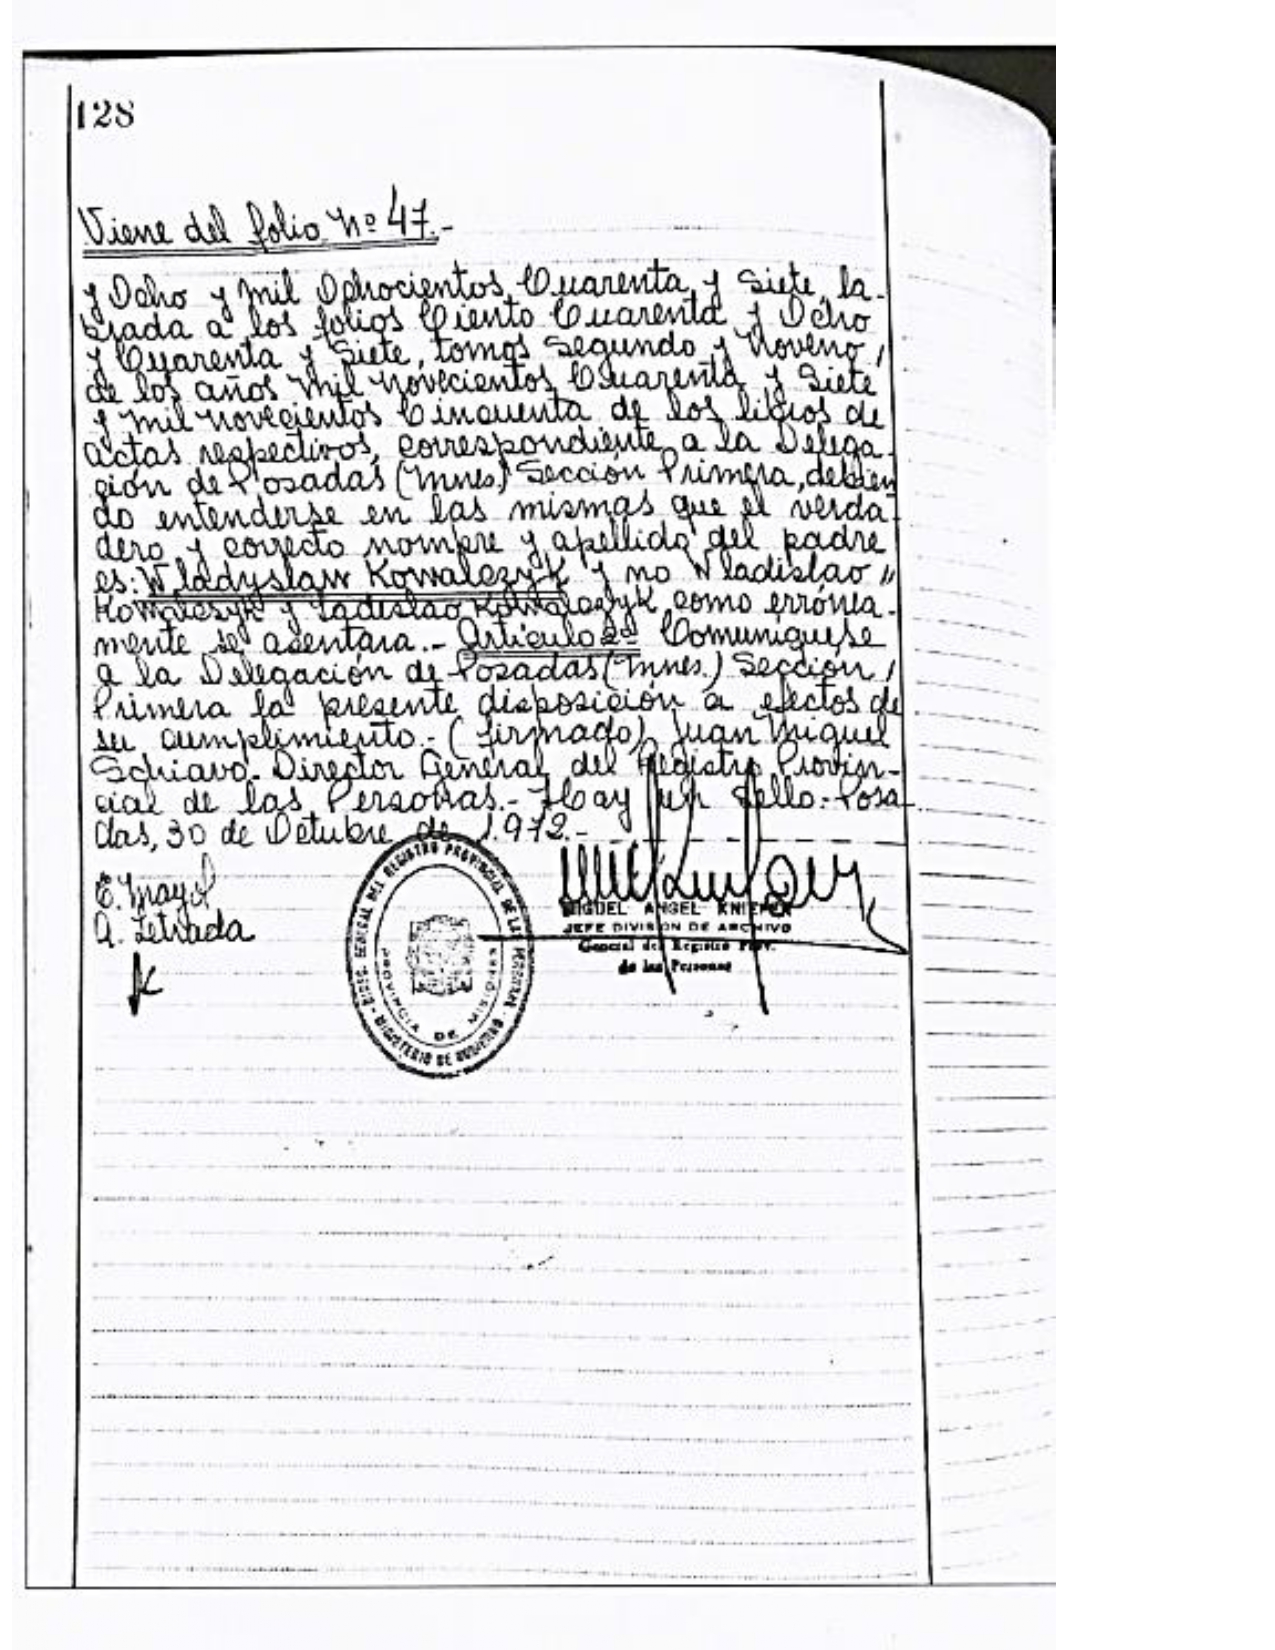 128
Viene del folio Nº 47.-
y Ocho y mil Ochocientos Cuarenta y Siete, la-
brada a los folios Ciento Cuarenta y Ocho
y Cuarenta y Siete, tomos Segundo y Noveno,
de los años mil novecientos Cuarenta y Siete
y mil novecientos Cincuenta de los libros de
actas respectivos, correspondiente a la Delega-
ción de Posadas (Mnes.) Sección Primera, debien
do entenderse en las mismas que el verda-
dero y correcto nombre y apellido del padre
es: Wladyslaw Kowalczyk y no Wladislao
Kowalcsyk y Ladislao Kowalczyk como errónea-
mente se asentara.- Artículo 2º Comuníquese
a la Delegación de Posadas (Mnes.) Sección
Primera la presente disposición a efectos de
su cumplimiento.- (firmado) Juan Miguel
Schiavo. Director General del Registro Provin-
cial de las Personas.- Hay un sello.- Posa
das, 30 de Octubre de 1.972.-
E. Mayol
A. Letrada
MIGUEL ANGEL KNIEPER
JEFE DIVISION DE ARCHIVO
General del Registro Prov.
de las Personas
DIREC. GENERAL DEL REGISTRO PROVINCIAL DE LAS PERSONAS
MINISTERIO DE GOBIERNO
PROVINCIA DE MISIONES